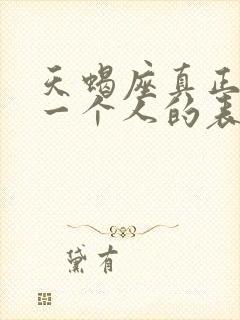 天蝎座真正
一个人的表
黛有